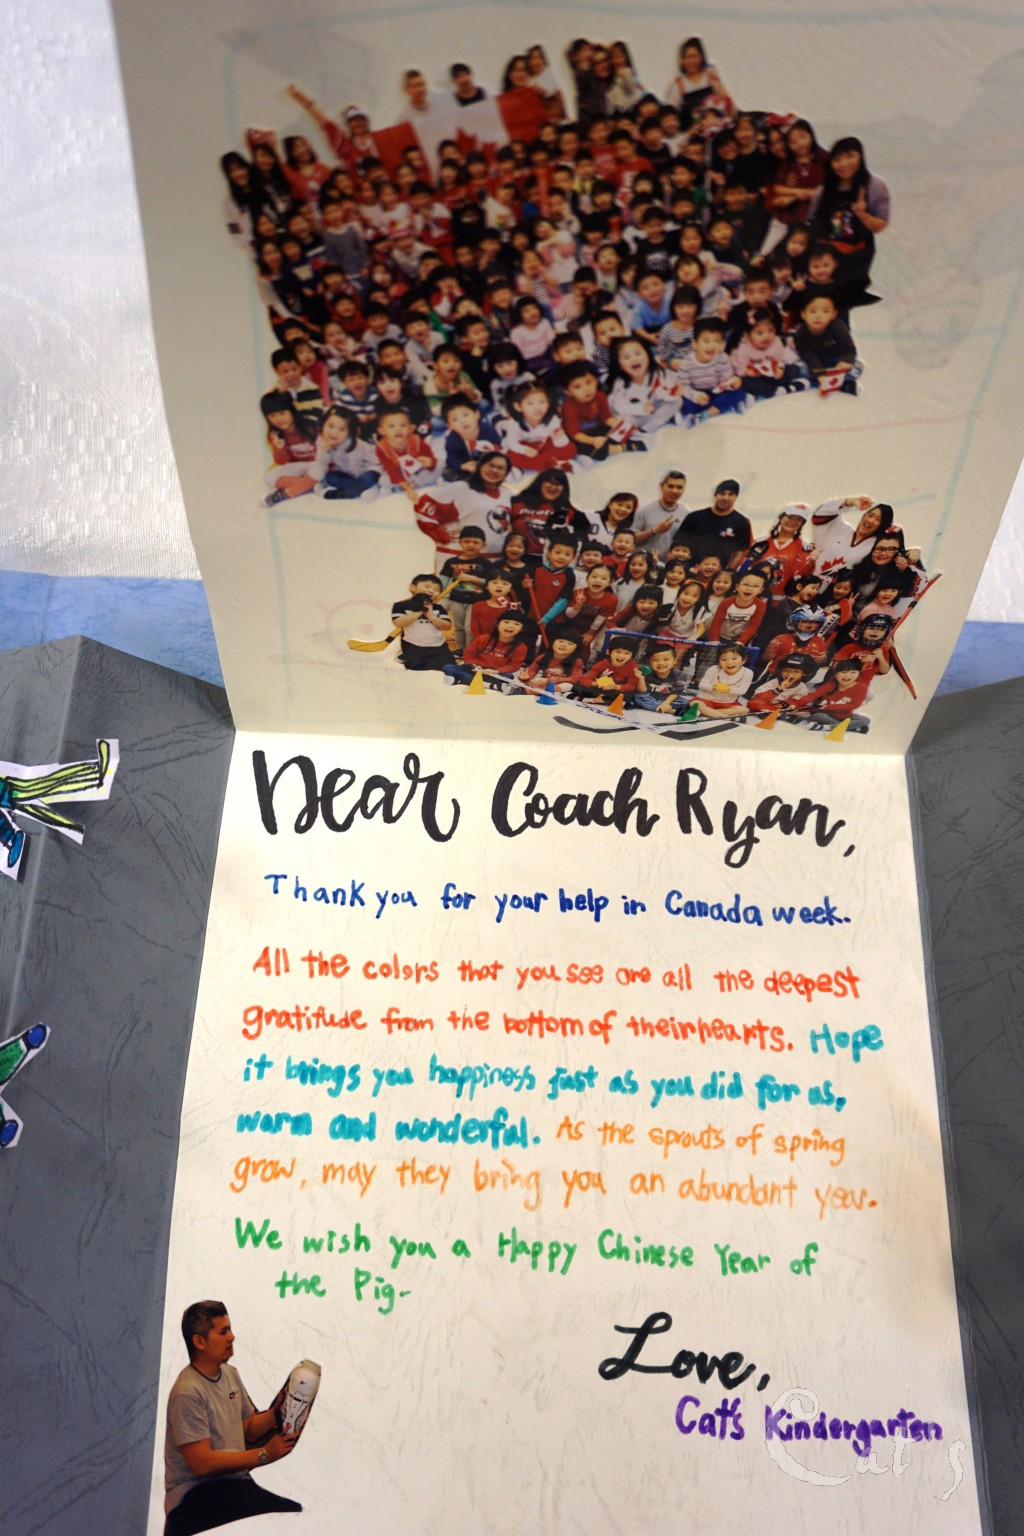 10
Pirates
Dear Coach Ryan,
Thank you for your help in Canada week.
All the colors that you see are all the deepest
gratitude from the bottom of their hearts. Hope
it brings you happiness just as you did for us,
warm and wonderful. As the sprouts of spring
grow, may they bring you an abundant year.
We wish you a Happy Chinese Year of
the Pig.
Love,
Cat's Kindergarten
Cat's